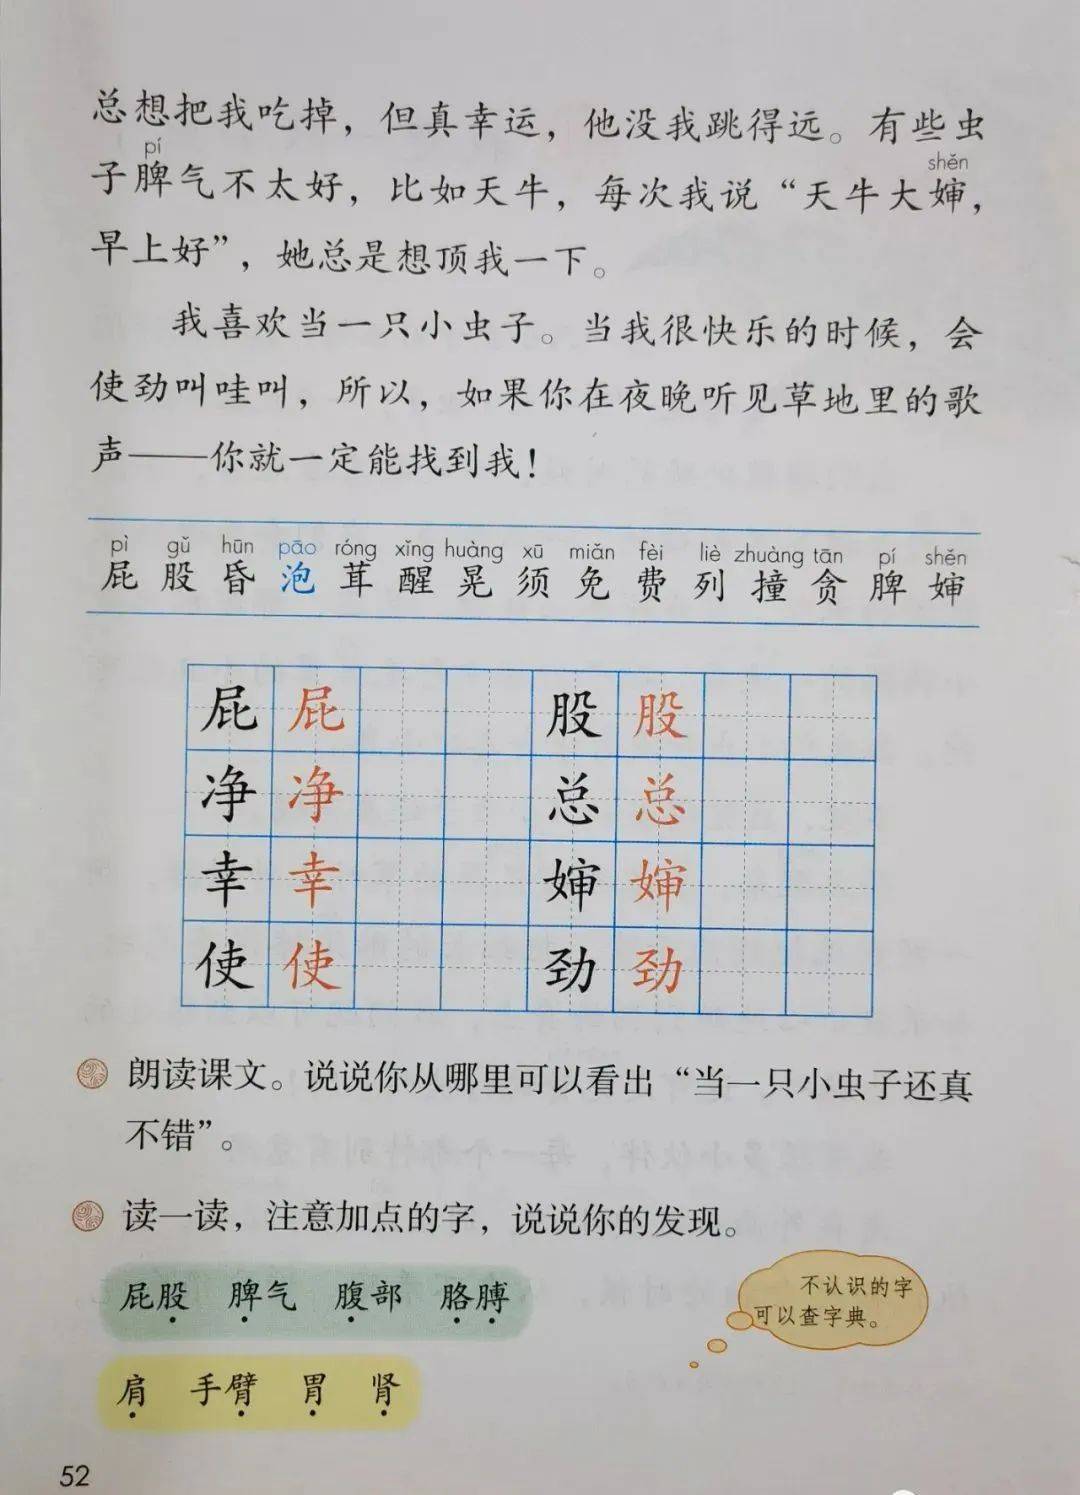 总想把我吃掉，但真幸运，他没我跳得远。有些虫
pí shěn
子脾气不太好，比如天牛，每次我说“天牛大婶，
早上好”，她总是想顶我一下。
我喜欢当一只小虫子。当我很快乐的时候，会
使劲叫哇叫，所以，如果你在夜晚听见草地里的歌
声——你就一定能找到我！
pì gǔ hūn pāo róng xǐng huàng xū miǎn fèi liè zhuàng tān pí shěn
屁 股 昏 泡 茸 醒 晃 须 免 费 列 撞 贪 脾 婶
屁 屁 股 股
净 净 总 总
幸 幸 婶 婶
使 使 劲 劲
朗读课文。说说你从哪里可以看出“当一只小虫子还真
不错”。
读一读，注意加点的字，说说你的发现。
屁股 脾气 腹部 胳膊
不认识的字
可以查字典。
肩 手臂 胃 肾
52